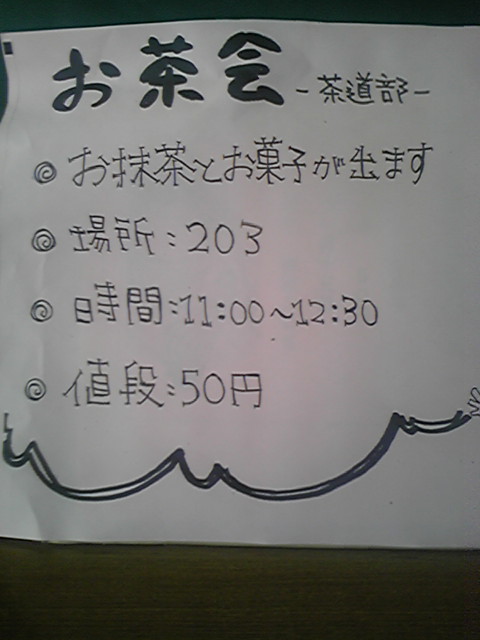 お茶会 -茶道部-
お抹茶とお菓子が出ます
場所:203
時間:11:00~12:30
値段:50円